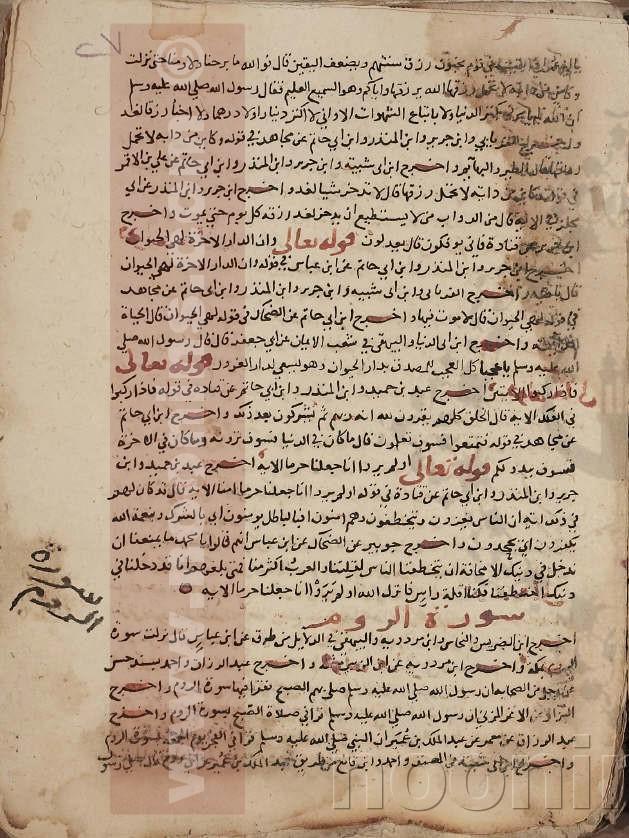 يخبون رزق سنتهم وبضعف اليقين قال فوالله ما برحنا ولا رمنا حتى نزلت
وكاين من دابة لا تحمل رزقها الله يرزقها واياكم وهو السميع العليم فقال رسول الله صلى الله عليه وسلم
ان الله لم يامرني بكنز الدنيا ولا باتباع الشهوات الا واني لا اكنز دينارا ولا درهما ولا اخبأ رزقا لغد
واخرج الفريابي وابن جرير وابن المنذر وابن ابي حاتم عن مجاهد في قوله وكاين من دابة لا تحمل
رزقها قال الطير والبهايم واخرج ابن ابي شيبة وابن جرير وابن المنذر وابن ابي حاتم عن علي بن الاقمر
في قوله وكاين من دابة لا تحمل رزقها قال لا تدخر شيا لغد واخرج ابن جرير وابن المنذر عن ابي
مجلز في الاية قال من الدواب من لا يستطيع ان يدخر لغد رزقه كل يوم حتى يموت واخرج
ابن جرير عن قتادة فاني يوفكون قال يعدلون قوله تعالى وان الدار الاخرة لهي الحيوان
اخرج ابن جرير وابن المنذر وابن ابي حاتم عن ابن عباس في قوله وان الدار الاخرة لهي الحيوان
قال باقية واخرج الفريابي وابن ابي شيبة وابن جرير وابن المنذر وابن ابي حاتم عن مجاهد
في قوله لهي الحيوان قال لا موت فيها واخرج ابن ابي حاتم عن الضحاك في قوله لهي الحيوان قال الحياة
الدايمة واخرج ابن ابي الدنيا والبيهقي في شعب الايمان عن ابي جعفر قال قال رسول الله صلى
الله عليه وسلم يا عجبا كل العجب للمصدق بدار الحيوان وهو يسعى لدار الغرور قوله تعالى
فاذا ركبوا الايتين اخرج عبد بن حميد وابن المنذر وابن ابي حاتم عن قتادة في قوله فاذا ركبوا
في الفلك الاية قال الخلق كلهم يقرون لله انه ربهم ثم يشركون بعد ذلك واخرج ابن ابي حاتم
عن مجاهد في قوله فتمتعوا فسوف تعلمون قال ما كان في الدنيا فسوف ترونه وما كان في الاخرة
فسوف يبدو لكم قوله تعالى اولم يروا انا جعلنا حرما الاية اخرج عبد بن حميد وابن
جرير وابن المنذر وابن ابي حاتم عن قتادة في قوله اولم يروا انا جعلنا حرما امنا الاية قال قد كان لهم
في ذلك اية ان الناس يغزون ويتخطفون وهم امنون افبالباطل يومنون اي بالشرك وبنعمة الله
يكفرون اي يجحدون واخرج جويبر عن الضحاك عن ابن عباس انهم قالوا يا محمد ما يمنعنا ان
ندخل في دينك الا مخافة ان يتخطفنا الناس لقلتنا والعرب اكثر منا فمتى بلغهم انا قد دخلنا في
دينك اختطفنا فكنا اكلة راس فانزل الله اولم يروا انا جعلنا حرما الاية
سورة الروم
سورة
الروم
اخرج ابن الضريس والنحاس وابن مردويه والبيهقي في الدلايل من طرق عن ابن عباس قال نزلت سورة
الروم بمكة واخرج ابن مردويه عن ابن الزبير مثله واخرج عبد الرزاق واحمد بسند حسن
عن رجل من الصحابة ان رسول الله صلى الله عليه وسلم صلى بهم الصبح فقرا فيها سورة الروم واخرج
البزار عن الاغر المزني ان رسول الله صلى الله عليه وسلم قرا في صلاة الصبح بسورة الروم واخرج
عبد الرزاق عن معمر عن عبد الملك بن عمير ان النبي صلى الله عليه وسلم قرا في الفجر يوم الجمعة بسورة الروم
واخرج ابن ابي شيبة في المصنف واحمد وابن قانع من طريق عبد الملك بن عمير